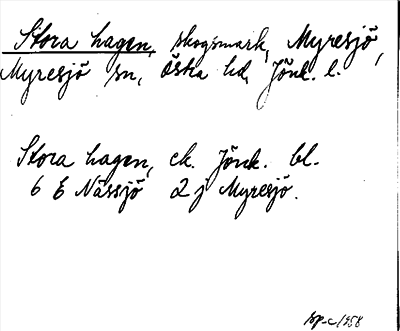 Stora hagen, skogsmark, Myresjö,
Myresjö sn, Östra hd, Jönk. l.
Stora hagen, ek. Jönk. bl.
6 E Nässjö 2 j Myresjö.